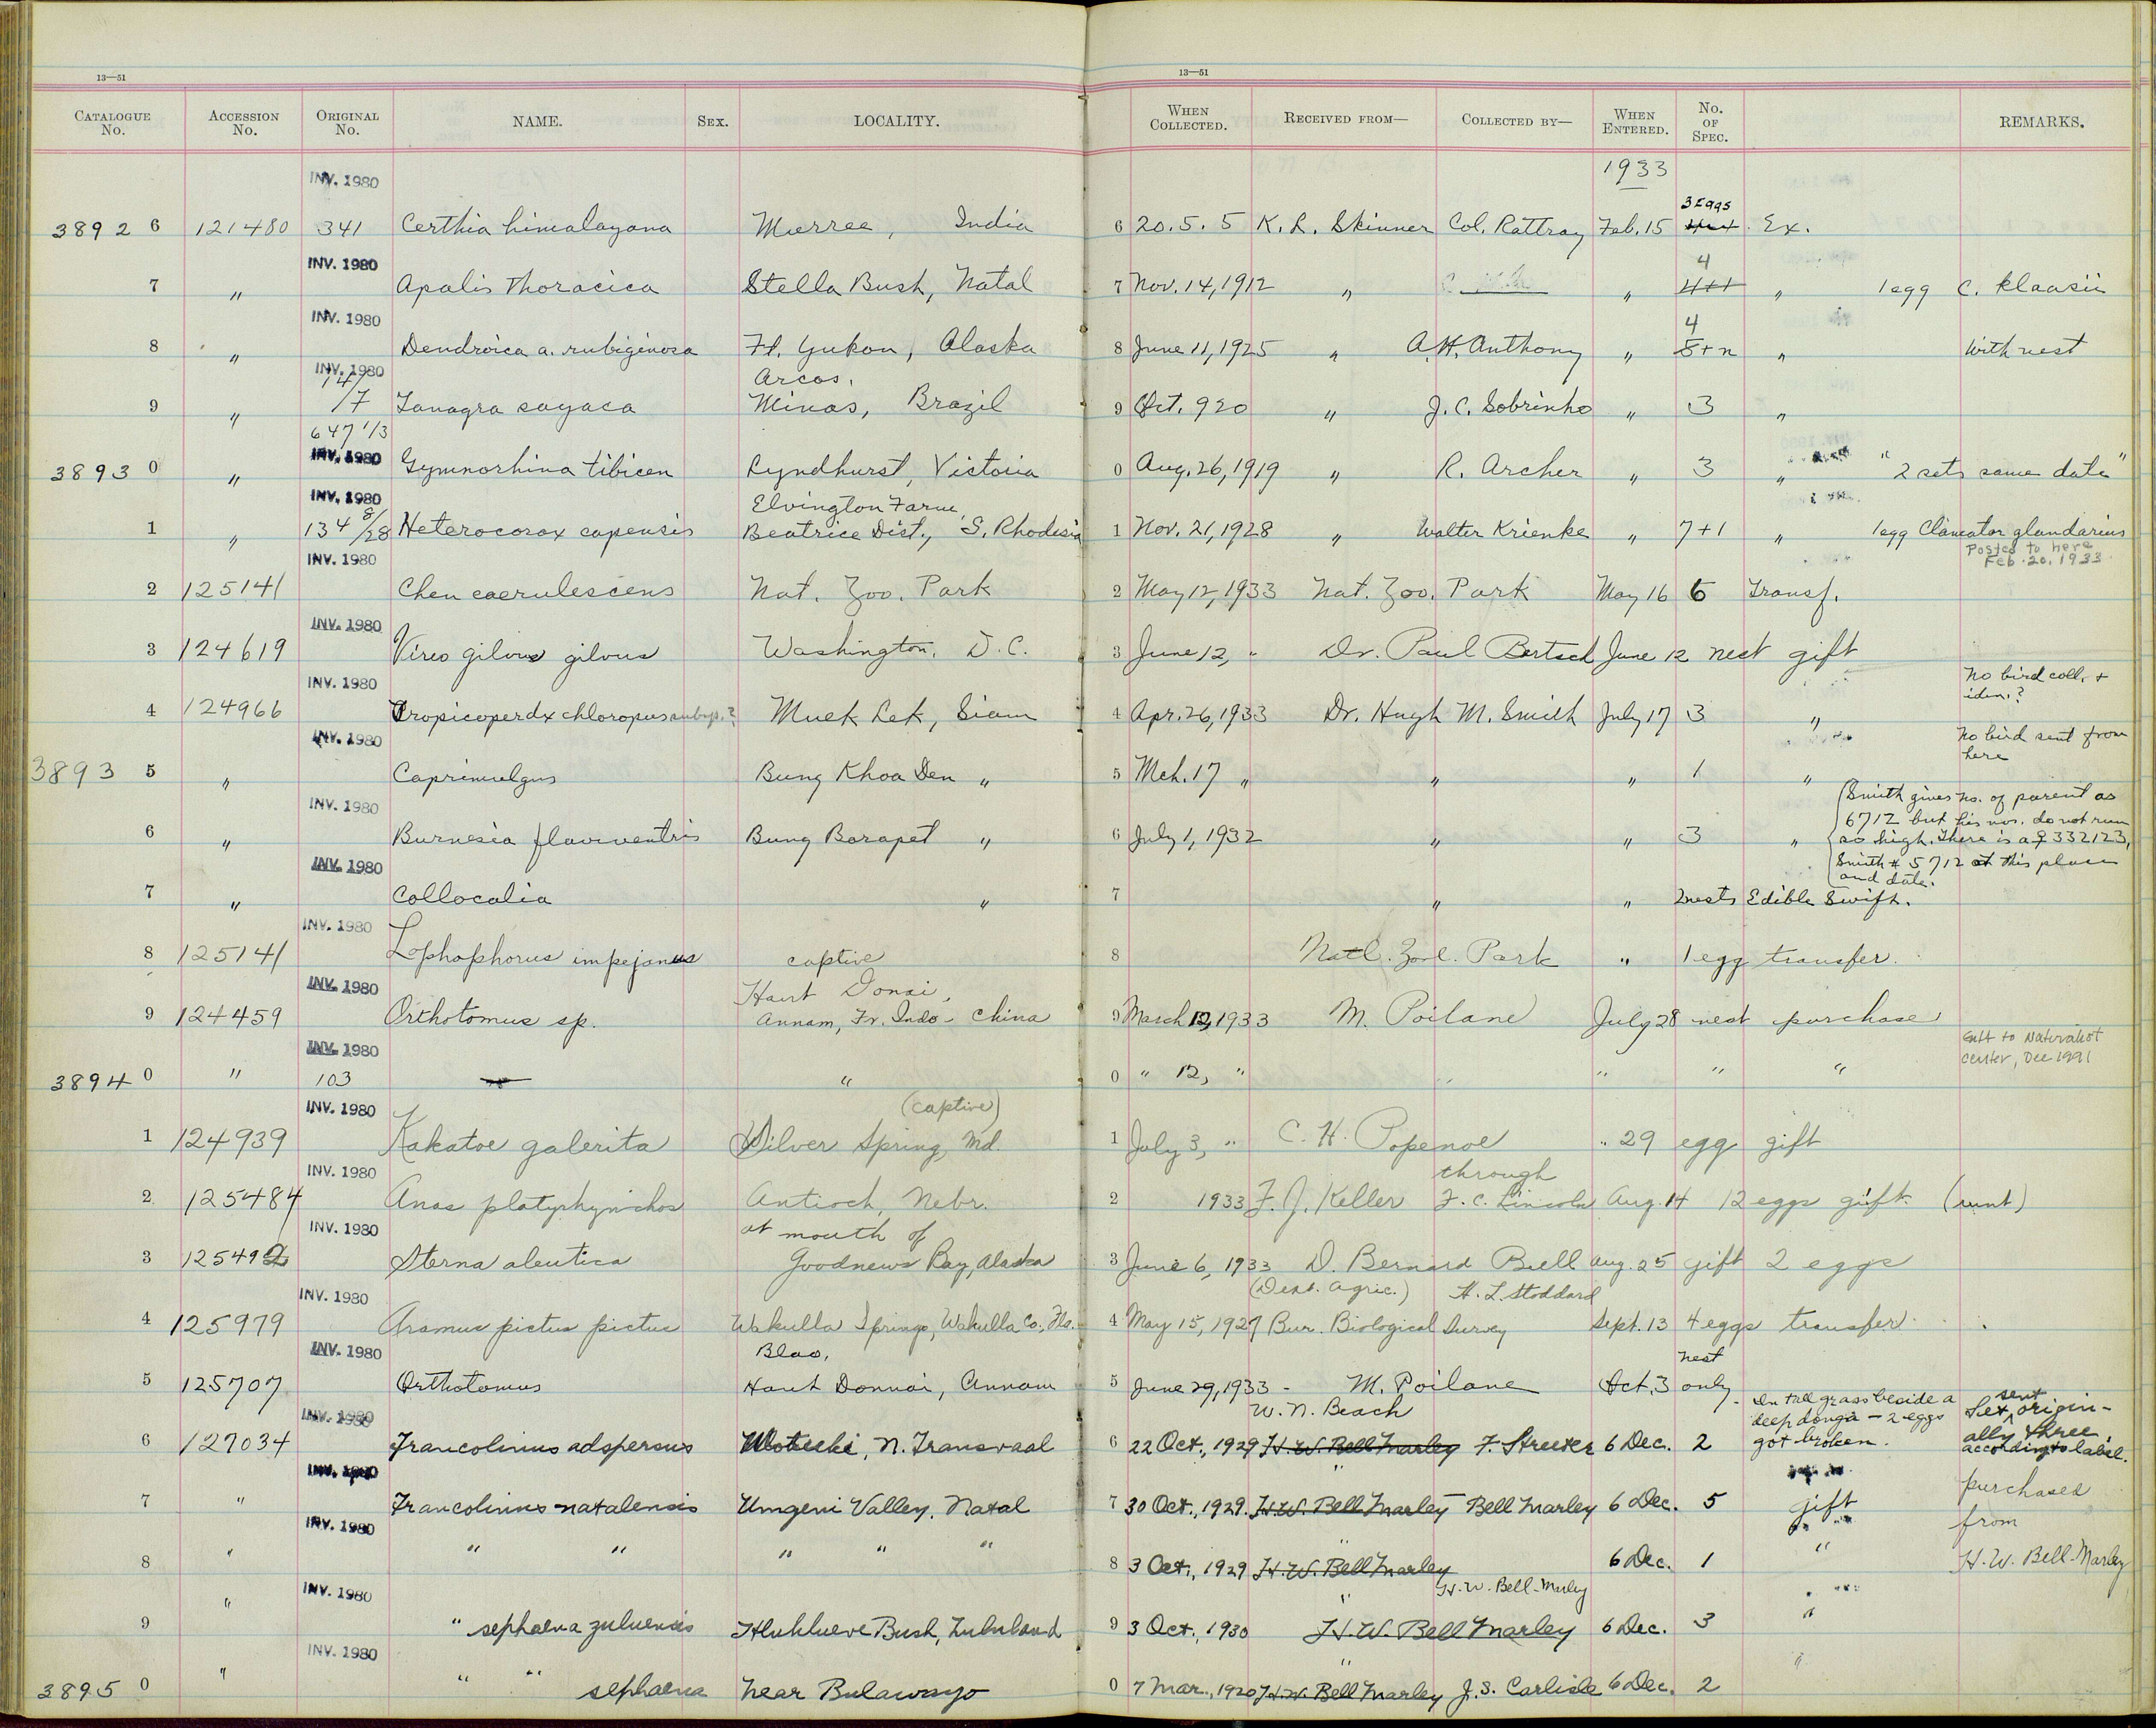 13—51
13—51
CATALOGUE No. ACCESSION No. ORIGINAL No. NAME. SEX. LOCALITY. WHEN COLLECTED. RECEIVED FROM— COLLECTED BY— WHEN ENTERED. No. OF SPEC. REMARKS.
INV. 1980 1933
3 Eggs
3892 6 121480 341 Certhia himalayana Murree, India 6 20.5.5 K. R. Skinner Col. Rattray Feb. 15 Ex.
INV. 1980 4
7 " Apalis thoracica Stella Bush, Natal 7 Nov. 14, 1912 " " 4+1 " 1 egg C. klaasii
INV. 1980 4
8 " Dendroica a. rubiginosa Ft. Yukon, Alaska 8 June 11, 1925 " A.H. Anthony " 5+n " With nest
INV. 1980 Arcos,
147
9 " 17 Tanagra sayaca Minas, Brazil 9 Oct. 920 " J. C. Sobrinho " 3 "
647 1/3
INV. 1980
3893 0 " Gymnorhina tibicen Lyndhurst, Victoria 0 Aug. 26, 1919 " R. Archer " 3 " "2 sets same date"
INV. 1980 Elvington Farm,
1 " 134 8/28 Heterocorax capensis Beatrice Dist., S. Rhodesia 1 Nov. 21, 1928 " Walter Krienke " 7+1 " 1 egg Clamator glandarius
INV. 1980 Posted to here
Feb. 20. 1933.
2 125141 Chen caerulescens Nat. Zoo. Park 2 May 12, 1933 Nat. Zoo. Park May 16 6 Transf.
INV. 1980
3 124619 Vireo gilvus gilvus Washington, D.C. 3 June 12, " Dr. Paul Bartsch June 12 nest gift
INV. 1980 No bird coll. +
iden.?
4 124966 Tropicoperdx chloropus subsp.? Muek Lek, Siam 4 Apr. 26, 1933 Dr. Hugh M. Smith July 17 3 "
INV. 1980 No bird sent from
here
3893 5 " Caprimulgus Bung Khoa Den " 5 Mch. 17 " " " 1 "
INV. 1980 Smith gives no. of parent as
6712 but his nos. do not run
6 " Burnesia flaviventris Bung Borapet " 6 July 1, 1932 " " 3 " so high. There is a ♀ 332123,
INV. 1980 Smith # 5712 at this place
and date.
7 " Collocalia " 7 " " 2 nests Edible Swift.
INV. 1980
8 125141 Lophophorus impejanus captive 8 Natl. Zool. Park " 1 egg transfer.
INV. 1980 Haut Donai,
9 124459 Orthotomus sp. Annam, Fr. Indo-China 9 March 12, 1933 M. Poilane July 28 nest purchase
INV. 1980 Sent to Naturalist
Center, Dec 1991
3894 0 " 103 " 0 " 12, " " " " "
INV. 1980 (captive)
1 124939 Kakatoe galerita Silver Spring, Md. 1 July 3, " C. H. Popenoe " 29 egg gift
INV. 1980 through
2 125484 Anas platyrhynchos Antioch, Nebr. 2 1933 F. J. Keller F. C. Lincoln Aug. 14 12 eggs gift. (runt)
INV. 1980 at mouth of
3 125492 Sterna aleutica Goodnews Bay, Alaska 3 June 6, 1933 D. Bernard Bull Aug. 25 gift 2 eggs
INV. 1980 (Dept. Agric.) H. L. Stoddard
4 125979 Aramus pictus pictus Wakulla Springs, Wakulla Co., Fla. 4 May 15, 1927 Bur. Biological Survey Sept. 13 4 eggs transfer.
INV. 1980 Blao, nest
5 125707 Orthotomus Haut Donnai, Annam 5 June 29, 1933 - M. Poilane Oct. 3 only
INV. 1980 W. N. Beach In tall grass beside a
deep donga - 2 eggs
got broken. Set sent origin-
ally three
according to label.
6 127034 Francolinus adspersus N. Transvaal 6 22 Oct., 1929 H. W. Bell Marley F. Streeter 6 Dec. 2
INV. 1980 " purchased
7 " Francolinus natalensis Umgeni Valley, Natal 7 30 Oct., 1929. H. W. Bell Marley Bell Marley 6 Dec. 5 gift
INV. 1980 from
8 " " " " " " 8 3 Oct., 1929 H. W. Bell Marley 6 Dec. 1 " H. W. Bell-Marley
INV. 1980 " H. W. Bell-Marley
9 " " sephaena zuluensis Hluhluwe Bush, Zululand 9 3 Oct., 1930 H. W. Bell Marley 6 Dec. 3 "
INV. 1980 "
3895 0 " " " sephaena Near Bulawayo 0 7 Mar., 1920 H. W. Bell Marley J. S. Carlisle 6 Dec. 2 "